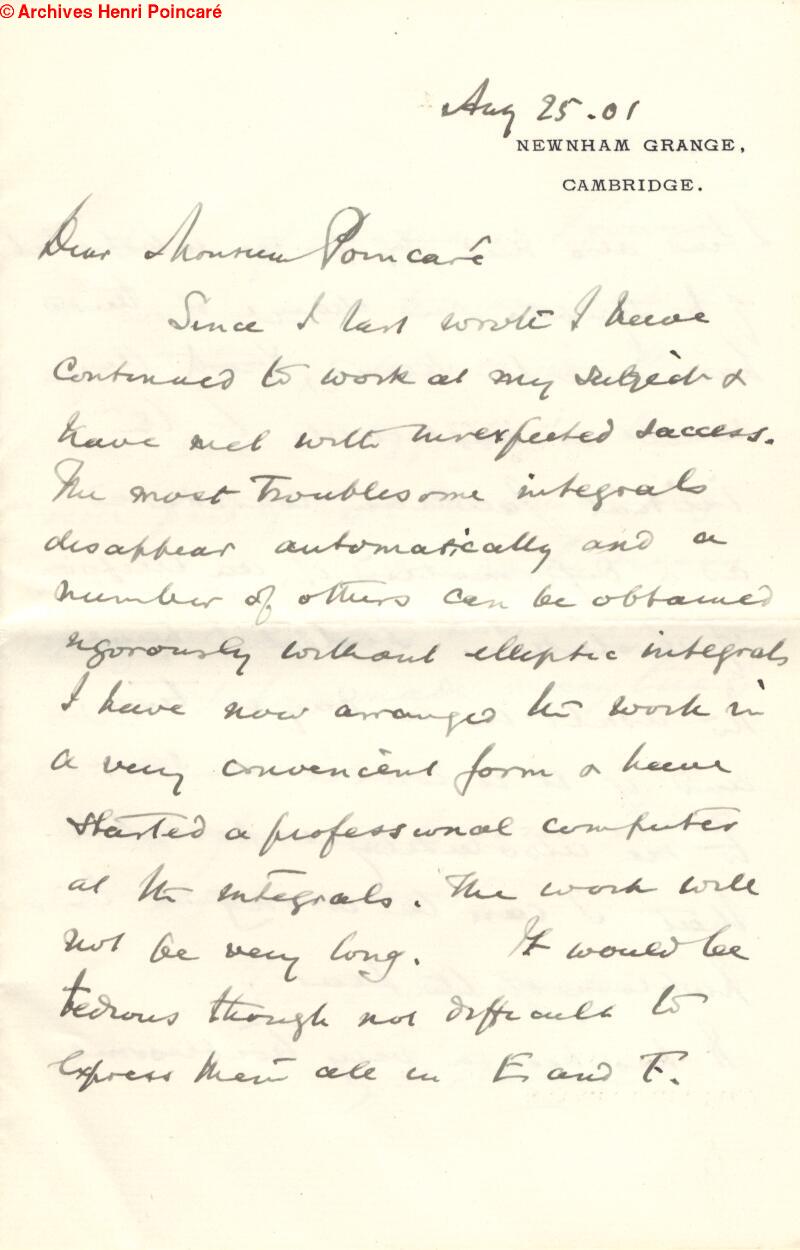 © Archives Henri Poincaré
Aug 25.01
NEWNHAM GRANGE,
CAMBRIDGE.
Dear Monsieur Poincaré
Since I last wrote I have
continued to work at my subject &
have met with unexpected success.
The most troublesome integrals
disappear automatically and a
number of others can be obtained
rigorously without elliptic integrals
I have now arranged the work in
a very convenient form & have
started a professional computer
at the integrals. The work will
not be very long. It would be
tedious though not difficult to
express them all in E and F.